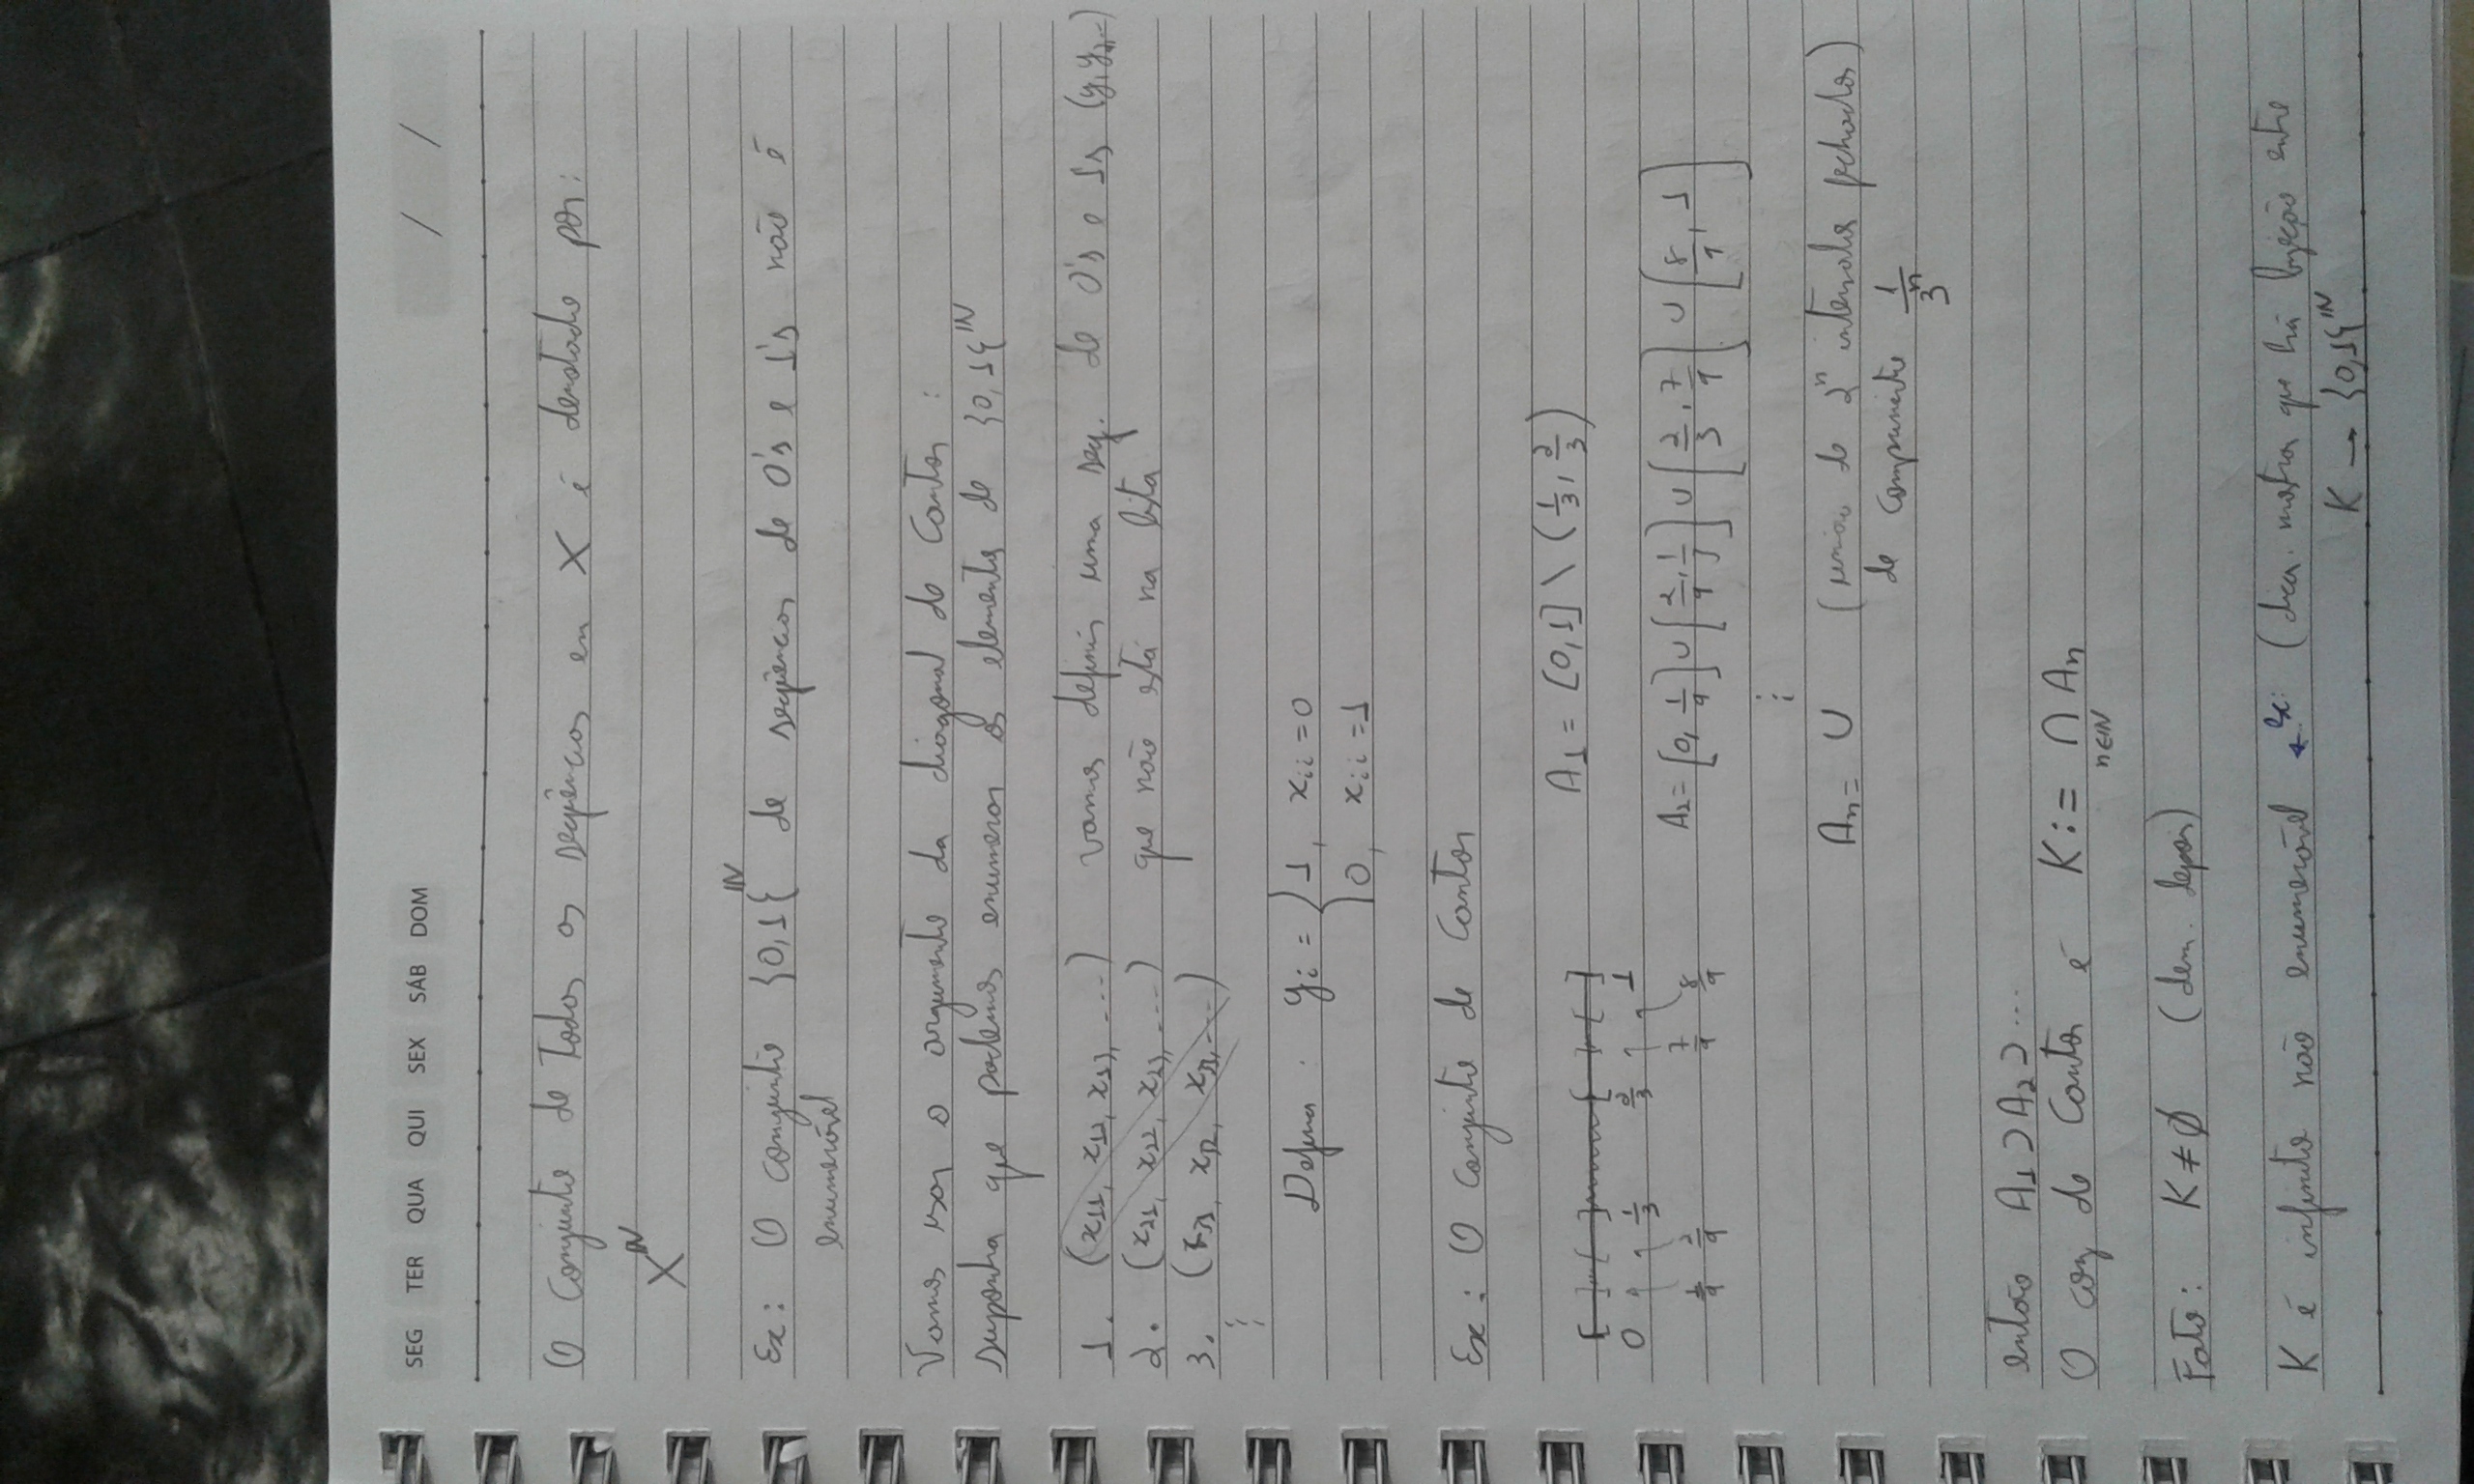 SEG TER QUA QUI SEX SÁB DOM / /
O conjunto de todas as seqüências em X é denotado por:
X^ℕ
Ex: O conjunto {0,1}^ℕ de seqüências de 0's e 1's não é
enumerável
Vamos usar o argumento da diagonal de Cantor:
suponha que podemos enumerar os elementos de {0,1}^ℕ
1. (x₁₁, x₁₂, x₁₃, ...) vamos definir uma seq. de 0's e 1s (y₁y₂,...)
2. (x₂₁, x₂₂, x₂₃, ...) que não está na lista
3. (x₃₁, x₃₂, x₃₃, ...)
⋮
Defina: yᵢ = { 1, xᵢᵢ = 0
0, xᵢᵢ = 1
Ex: O conjunto de Cantor
A₁ = [0,1] \ (1/3, 2/3)
[ ] [ ] [ ] [ ]
0 1/3 2/3 1
1/9 2/9 7/9 8/9
A₂ = [0, 1/9] ∪ [2/9, 1/3] ∪ [2/3, 7/9] ∪ [8/9, 1]
⋮
Aₙ = ∪ (união de 2ⁿ intervalos fechados)
de comprimento 1/3ⁿ
então A₁ ⊃ A₂ ⊃ ...
O conj de Cantor é K := ∩ Aₙ
n∈ℕ
Fato: K ≠ ∅ (dem. depois)
K é infinito não enumerável ← ex: (dica: mostrar que há bijeção entre
K → {0,1}^ℕ